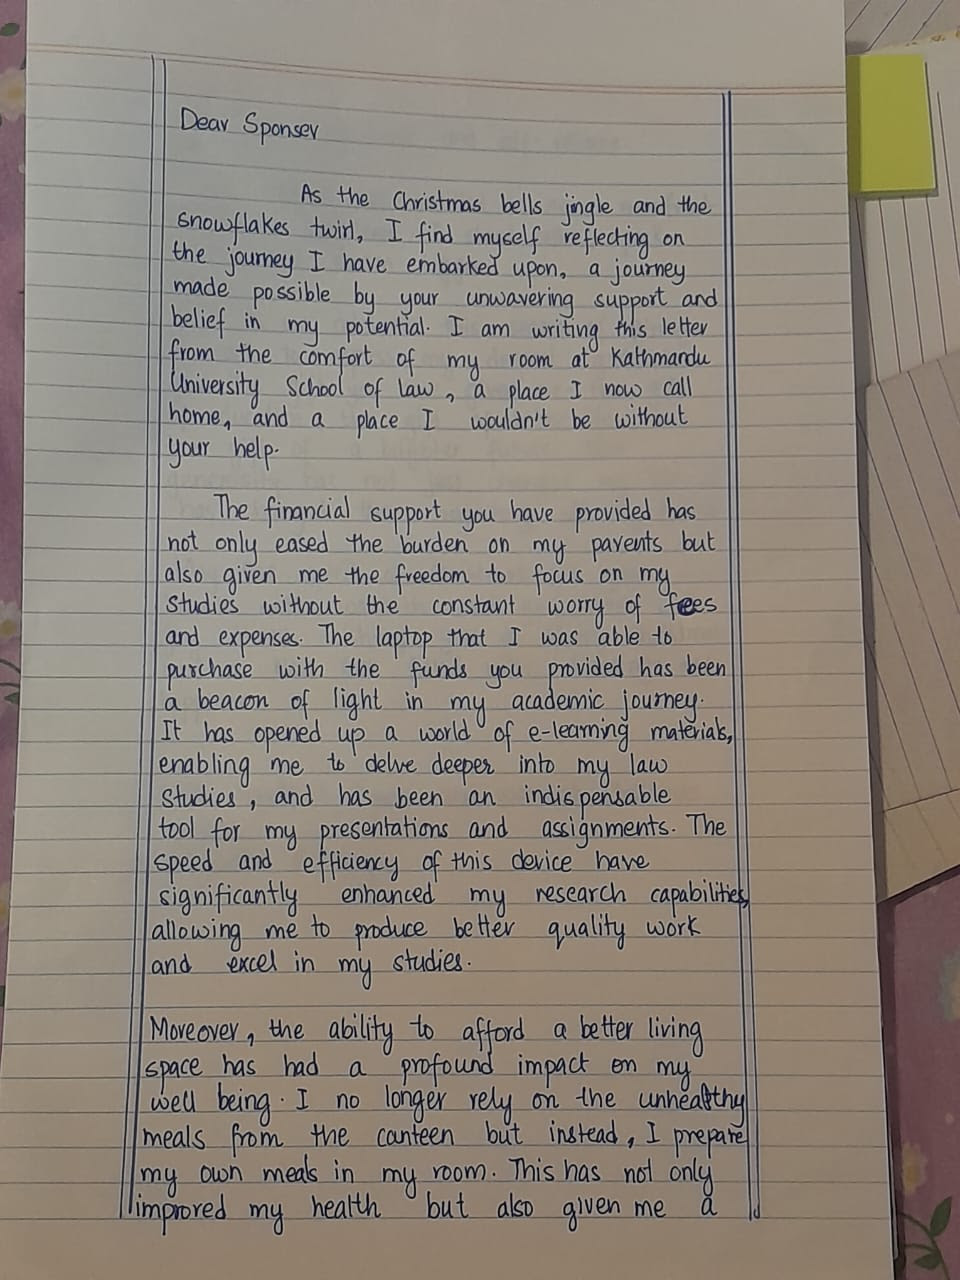 Dear Sponser
As the Christmas bells jingle and the
snowflakes twirl, I find myself reflecting on
the journey I have embarked upon, a journey
made possible by your unwavering support and
belief in my potential. I am writing this letter
from the comfort of my room at Kathmandu
University School of law, a place I now call
home, and a place I wouldn't be without
your help.
The financial support you have provided has
not only eased the burden on my parents but
also given me the freedom to focus on my
studies without the constant worry of fees
and expenses. The laptop that I was able to
purchase with the funds you provided has been
a beacon of light in my academic journey.
It has opened up a world of e-learning materials,
enabling me to delve deeper into my law
studies, and has been an indispensable
tool for my presentations and assignments. The
speed and efficiency of this device have
significantly enhanced my research capabilities,
allowing me to produce better quality work
and excel in my studies.
Moreover, the ability to afford a better living
space has had a profound impact on my
well being. I no longer rely on the unhealthy
meals from the canteen but instead, I prepare
my own meals in my room. This has not only
improved my health but also given me a